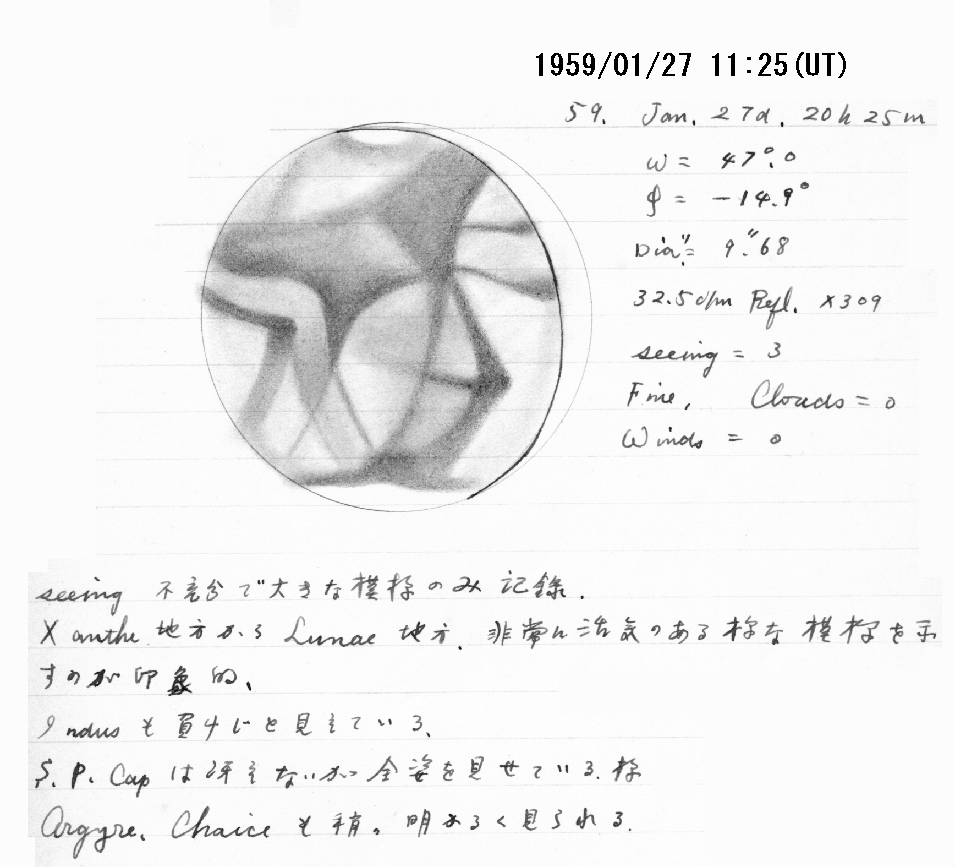 1959/01/27 11:25(UT)
59. Jan. 27d. 20h 25m
ω = 47°.0
φ = -14.9°
Dia = 9."68
32.5c/m Refl. ×309
seeing = 3
Fine, Clouds = 0
Winds = 0
seeing 不充分で大きな模様のみ記録.
Xanthe 地方から Lunae 地方. 非常に活気のある様な模様を示
すのが印象的、
Indus も見えている、
S.P. Cap は冴えないが全姿を見せている.様
Argyre. Chaice も稍。明かるく見られる.